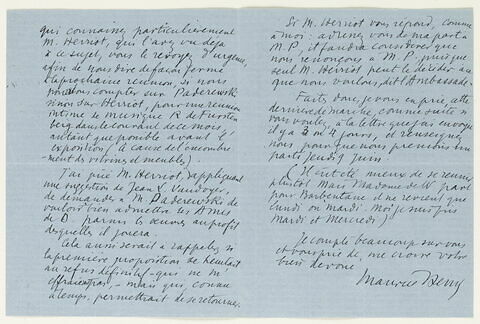 qui connaissez particulièrement
M. Herriot, qui l'avez vu déjà
à ce sujet, vous le revoyez d'urgence,
afin de nous dire de façon formelle
à la prochaine réunion, si nous
pouvons compter sur Paderewski
sinon sur Herriot, pour une réunion
intime de musique R. de Fursten-
berg dans le courant de ce mois,
autant que possible avant l'
exposition (à cause de l'encombre-
-ment de vitrines et meubles).
J'ai prié M. Herriot, appliquant
une suggestion de Jean L. Vaudoyer,
de demander à M. Paderewski de
vouloir bien admettre les Amis
de D. parmi les œuvres au profit
desquelles il jouera.
Cela aussi serait à rappeler, si
la première proposition se heurtait
au refus définitif - qui ne m'
- mais qui, connu
à temps, permettrait de se retourner.
Si M. Herriot vous répond, comme
à moi : de ma part à
M. P., il faudra considérer que
nous renonçons à M. P., puisque
seul M. Herriot peut le décider au
que nous voulons, dit l'Ambassade.
Faites donc, je vous en prie, cette
dernière démarche, comme suite si
vous voulez, à la lettre que j'ai envoyée
il y a 3 ou 4 jours, et renseignez
nous pour que nous prenions un
parti Jeudi 9 Juin.
(Il eut été mieux de se réunir
plutôt. Mais Madame de W part
pour Barbentane et ne revient que
lundi ou mardi. Moi je suis pris
Mardi et Mercredi)
Je compte beaucoup sur vous
et vous prie de me croire votre
bien dévoué
Maurice Henry